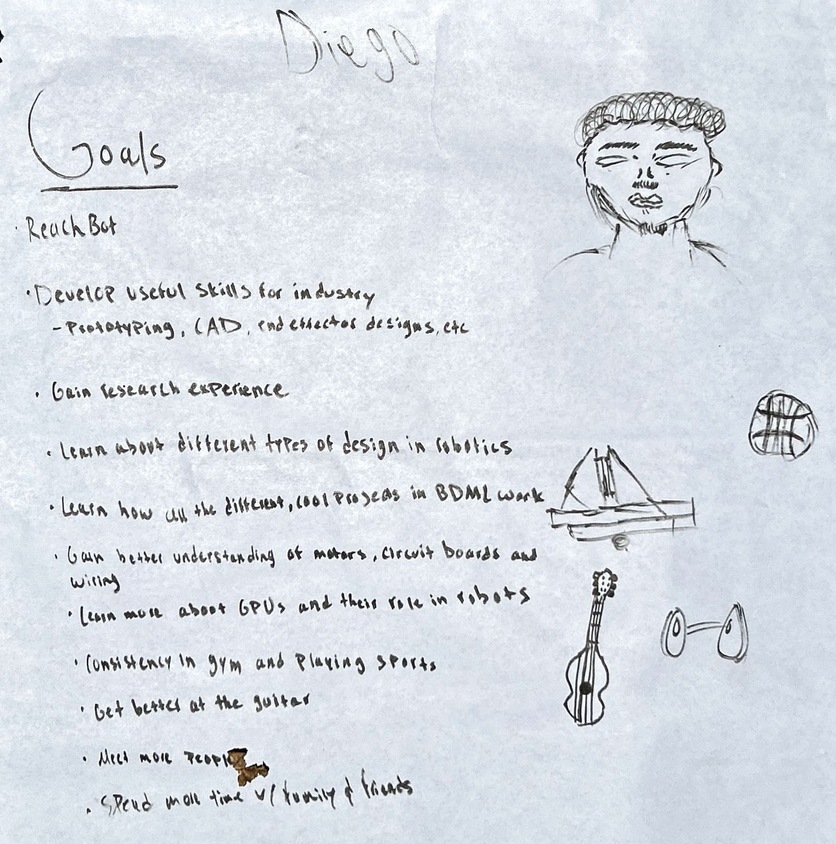 Diego
Goals
· ReachBot
· Develop useful skills for industry
- Prototyping, CAD, end effector designs, etc
· Gain research experience
· Learn about different types of design in robotics
· Learn how all the different, cool projects in BDML work
· Gain better understanding of motors, circuit boards and
wiring
· Learn more about GPUs and their role in robots
· Consistency in gym and playing sports
· Get better at the guitar
· Meet more people
· Spend more time w/ family & friends